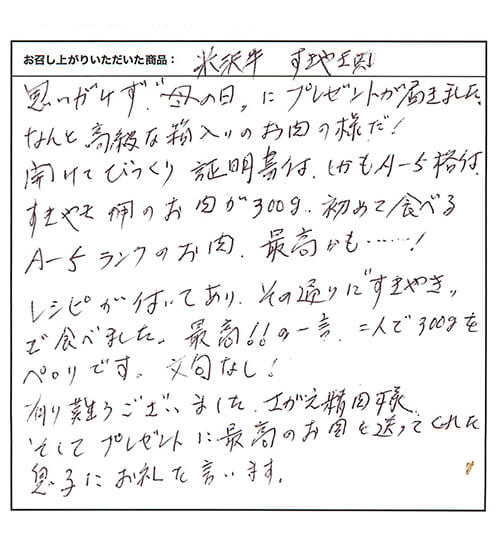 お召し上がりいただいた商品： 米沢牛 すきやき肉
思いがけず"母の日"にプレゼントが届きました、
なんと高級な箱入りのお肉の様だ！
開けてびっくり 証明書付、しかもA-5格付、
すきやき用のお肉が300g、初めて食べる
A-5ランクのお肉、最高かも……！
レシピが付いてあり、その通りに"すきやき"
で食べました。最高!!の一言、二人で300gを
ペロリです。文句なし！
有り難うございました、さがえ精肉様、
そしてプレゼントに最高のお肉を送ってくれた
息子にお礼を言います。